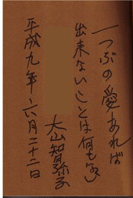 一つぶの愛あれば
出来ないことは何も無い
大山智弥子
平成九年六月二十二日